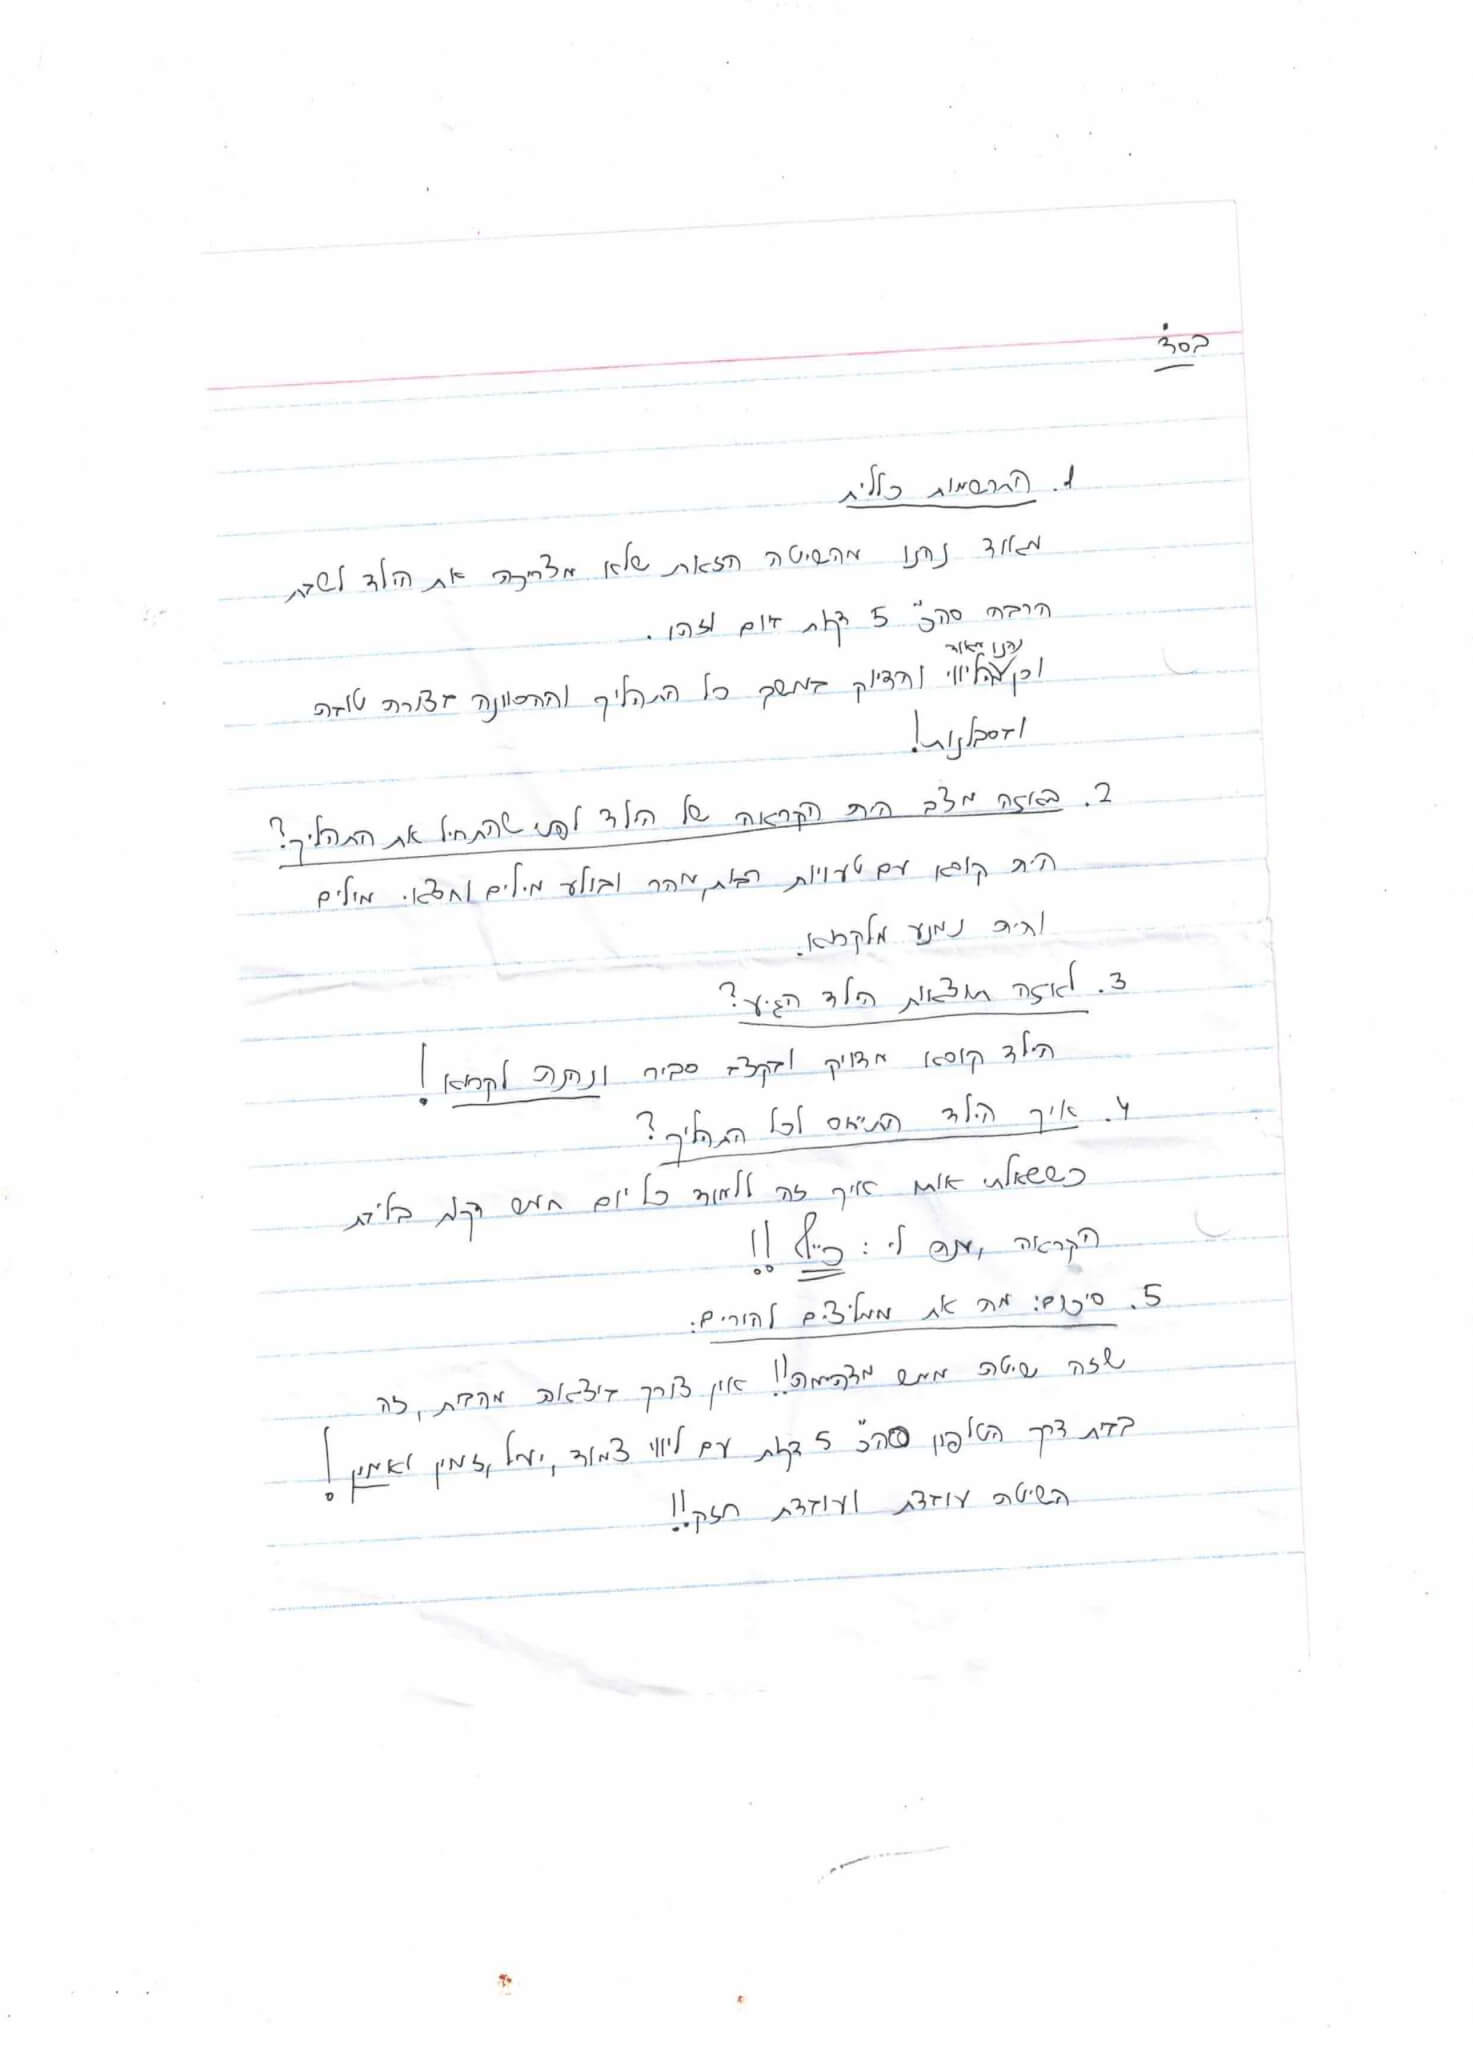 בסד
1. התרשמות כללית
מאוד נהנו מהשיטה הזאת שלא מצריכה את הילד לשבת
הרבה סה"כ 5 דקות ביום וזהו.
נהנו מאוד
וכן מהליווי והדיוק במשך כל התהליך וההכוונה בצורה טובה
ובסבלנות!
2. באיזה מצב היתה הקראה של הילד לפני שהתחיל את התהליך?
היה קורא עם טעויות רבות, מהר ובולע מילים וחצאי מילים
והיה נמנע מלקרוא.
3. לאיזה תוצאות הילד הגיע?
הילד קורא מדויק ובקצב סביר ונהנה לקרוא!
4. איך הילד התייחס לכל התהליך?
כששאלתי אותו איך זה ללמוד כל יום חמש דקות בלידת
הקראה, ענה לי: כייף!!
5. סיכום: מה את ממליצים להורים:
שזה שיטה ממש מדהימה!! אין צורך ביציאה מהבית, זה
בבית דרך הטלפון סה"כ 5 דקות עם ליווי צמוד, יעיל, זמין ואמין!
השיטה עובדת ועובדת חזק!!